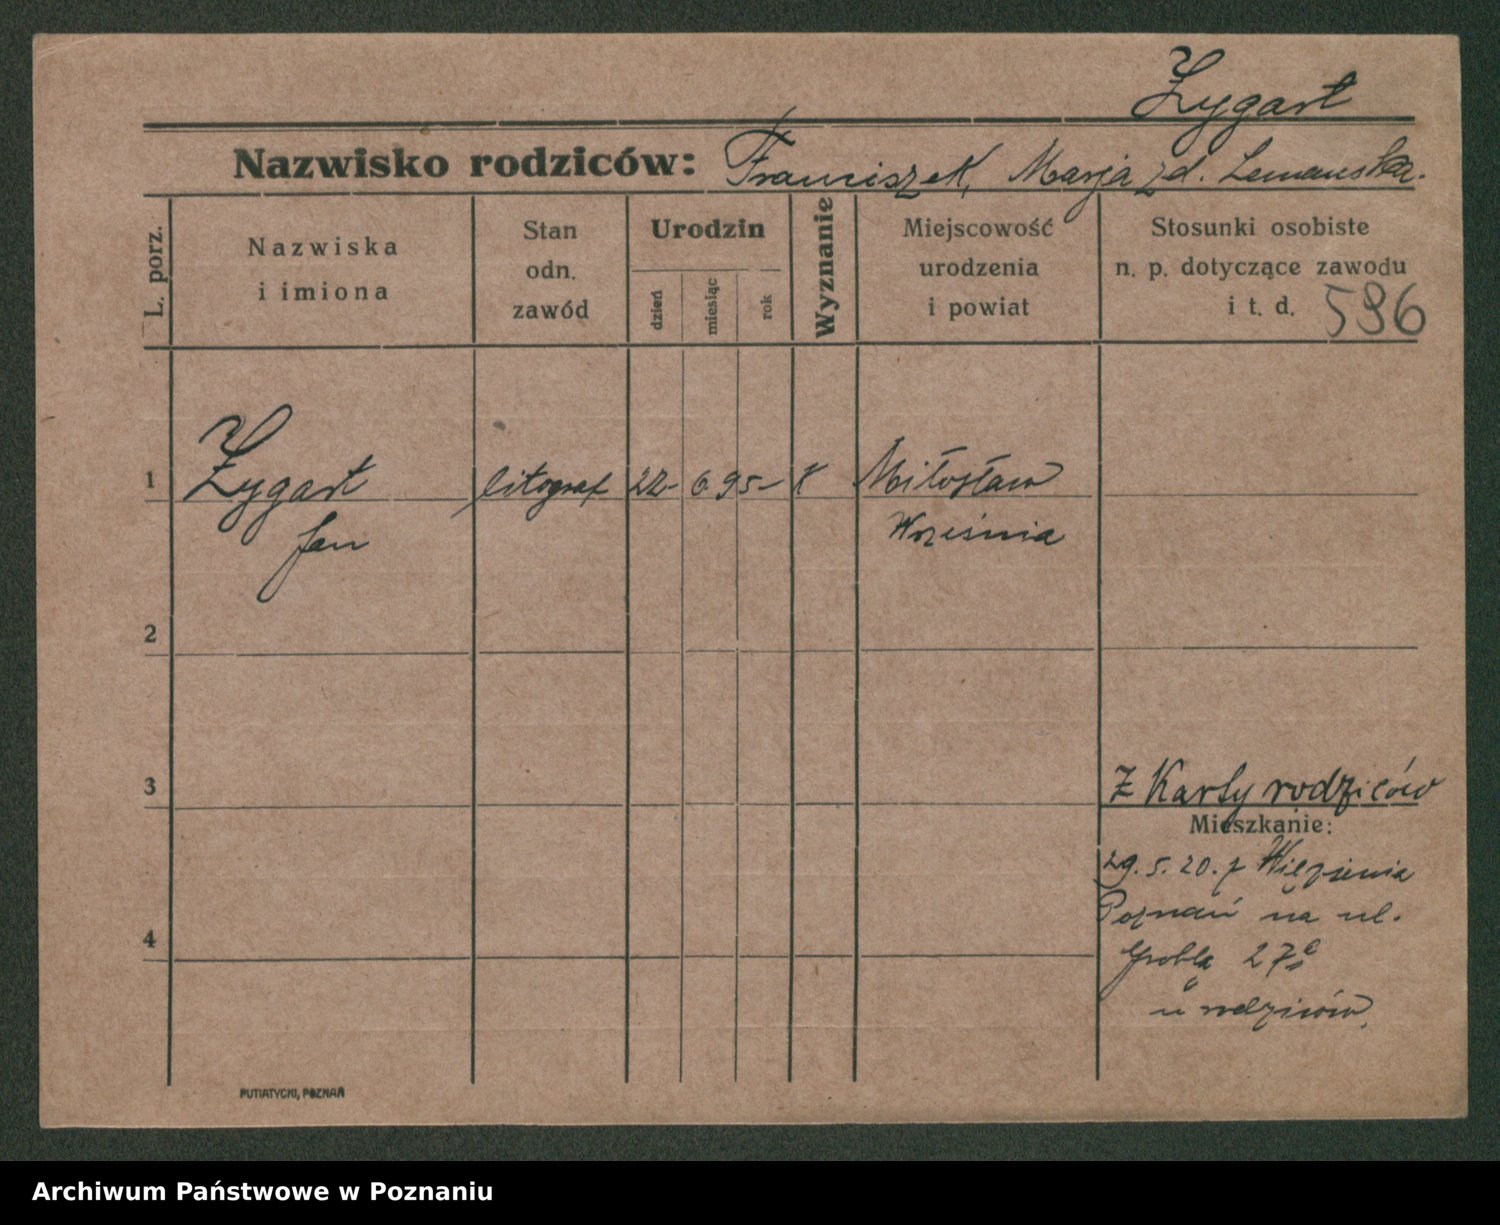 Zygart
Nazwisko rodziców: Franciszek, Marja zd. Lemanska.
L. porz.
Nazwiska
i imiona
Stan
odn.
zawód
Urodzin
dzień
miesiąc
rok
Wyznanie
Miejscowość
urodzenia
i powiat
Stosunki osobiste
n. p. dotyczące zawodu
i t. d. 596
1 Zygart litograf 22- 6 95- K Miłosław
Jan Września
2
3 Z Karty rodziców
Mieszkanie:
29.5.20. z Więzienia
Poznań na ul.
4
Grobla 27
u rodziców,
PUTIATYCKI, POZNAŃ
Archiwum Państwowe w Poznaniu